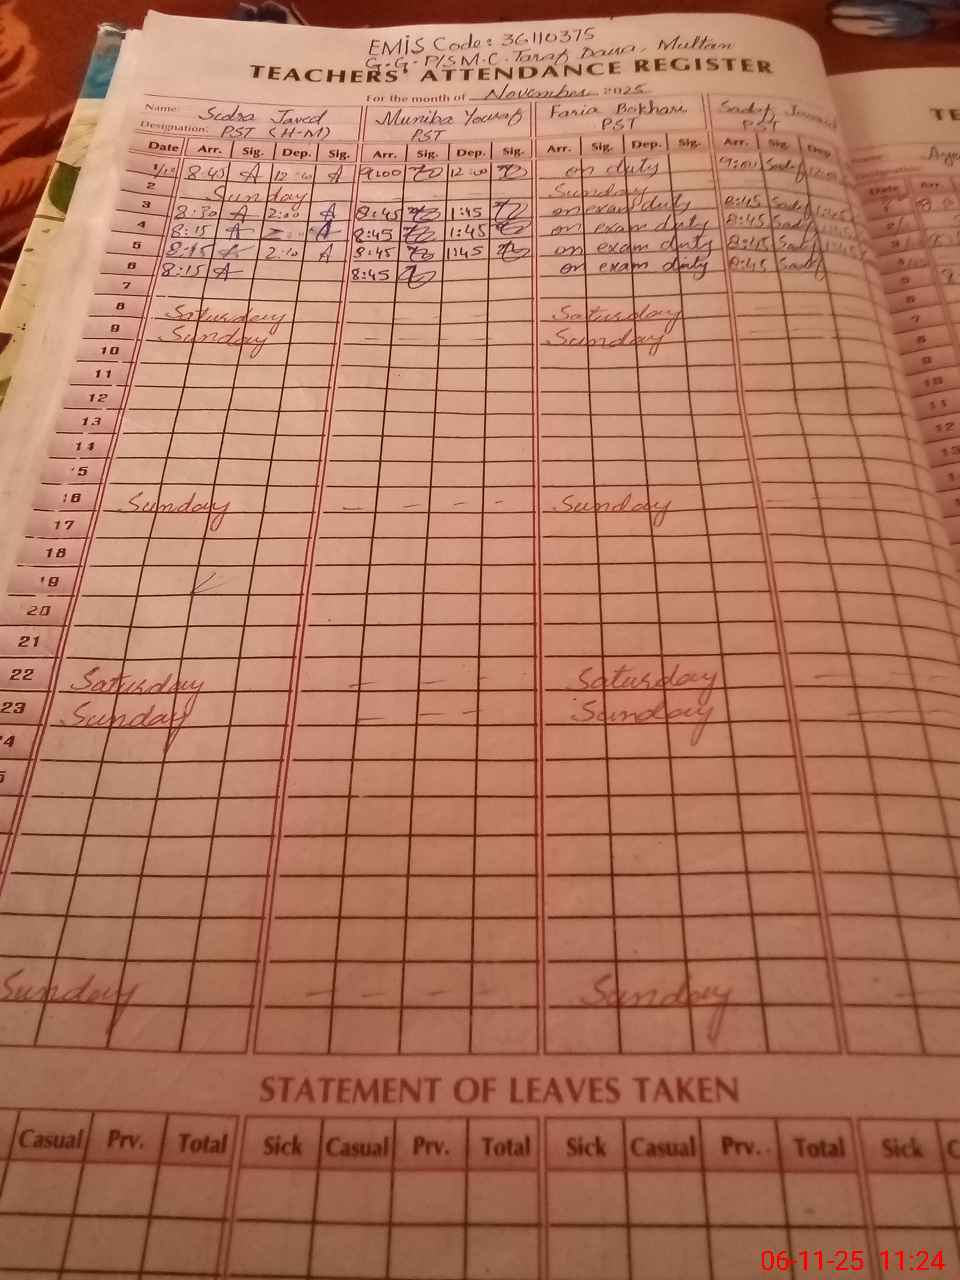 EMIS Code: 36110375
G.G.P/S M.C. Taraf Daira, Multan
TEACHERS' ATTENDANCE REGISTER
For the month of November 2025
Name: Sidra Javed Muniba Yousaf Faria Bokhari Sadaf
Designation: PST (H-M) PST PST PST
Date Arr. Sig. Dep. Sig. Arr. Sig. Dep. Sig. Arr. Sig. Dep. Sig. Arr. Sig. Dep.
8:45 9:00 on duty 9:00 Sadaf
2 Sunday Sunday
3 8:30 2:00 8:45 1:45 on exam duty 8:45 Sadaf 1:45
4 8:15 8:45 1:45 on exam duty 8:45 Sadaf 1:45
5 8:15 8:45 1:45 on exam duty 8:45 Sadaf
6 8:15 8:45 on exam duty 8:45 Sadaf
7
8 Saturday Saturday
9 Sunday Sunday
10
11
12
13
14
15
16 Sunday Sunday
17
18
19
20
21
22 Saturday Saturday
23 Sunday Sunday
Sunday Sunday
STATEMENT OF LEAVES TAKEN
Casual Prv. Total Sick Casual Prv. Total Sick Casual Prv. Total Sick
06-11-25 11:24